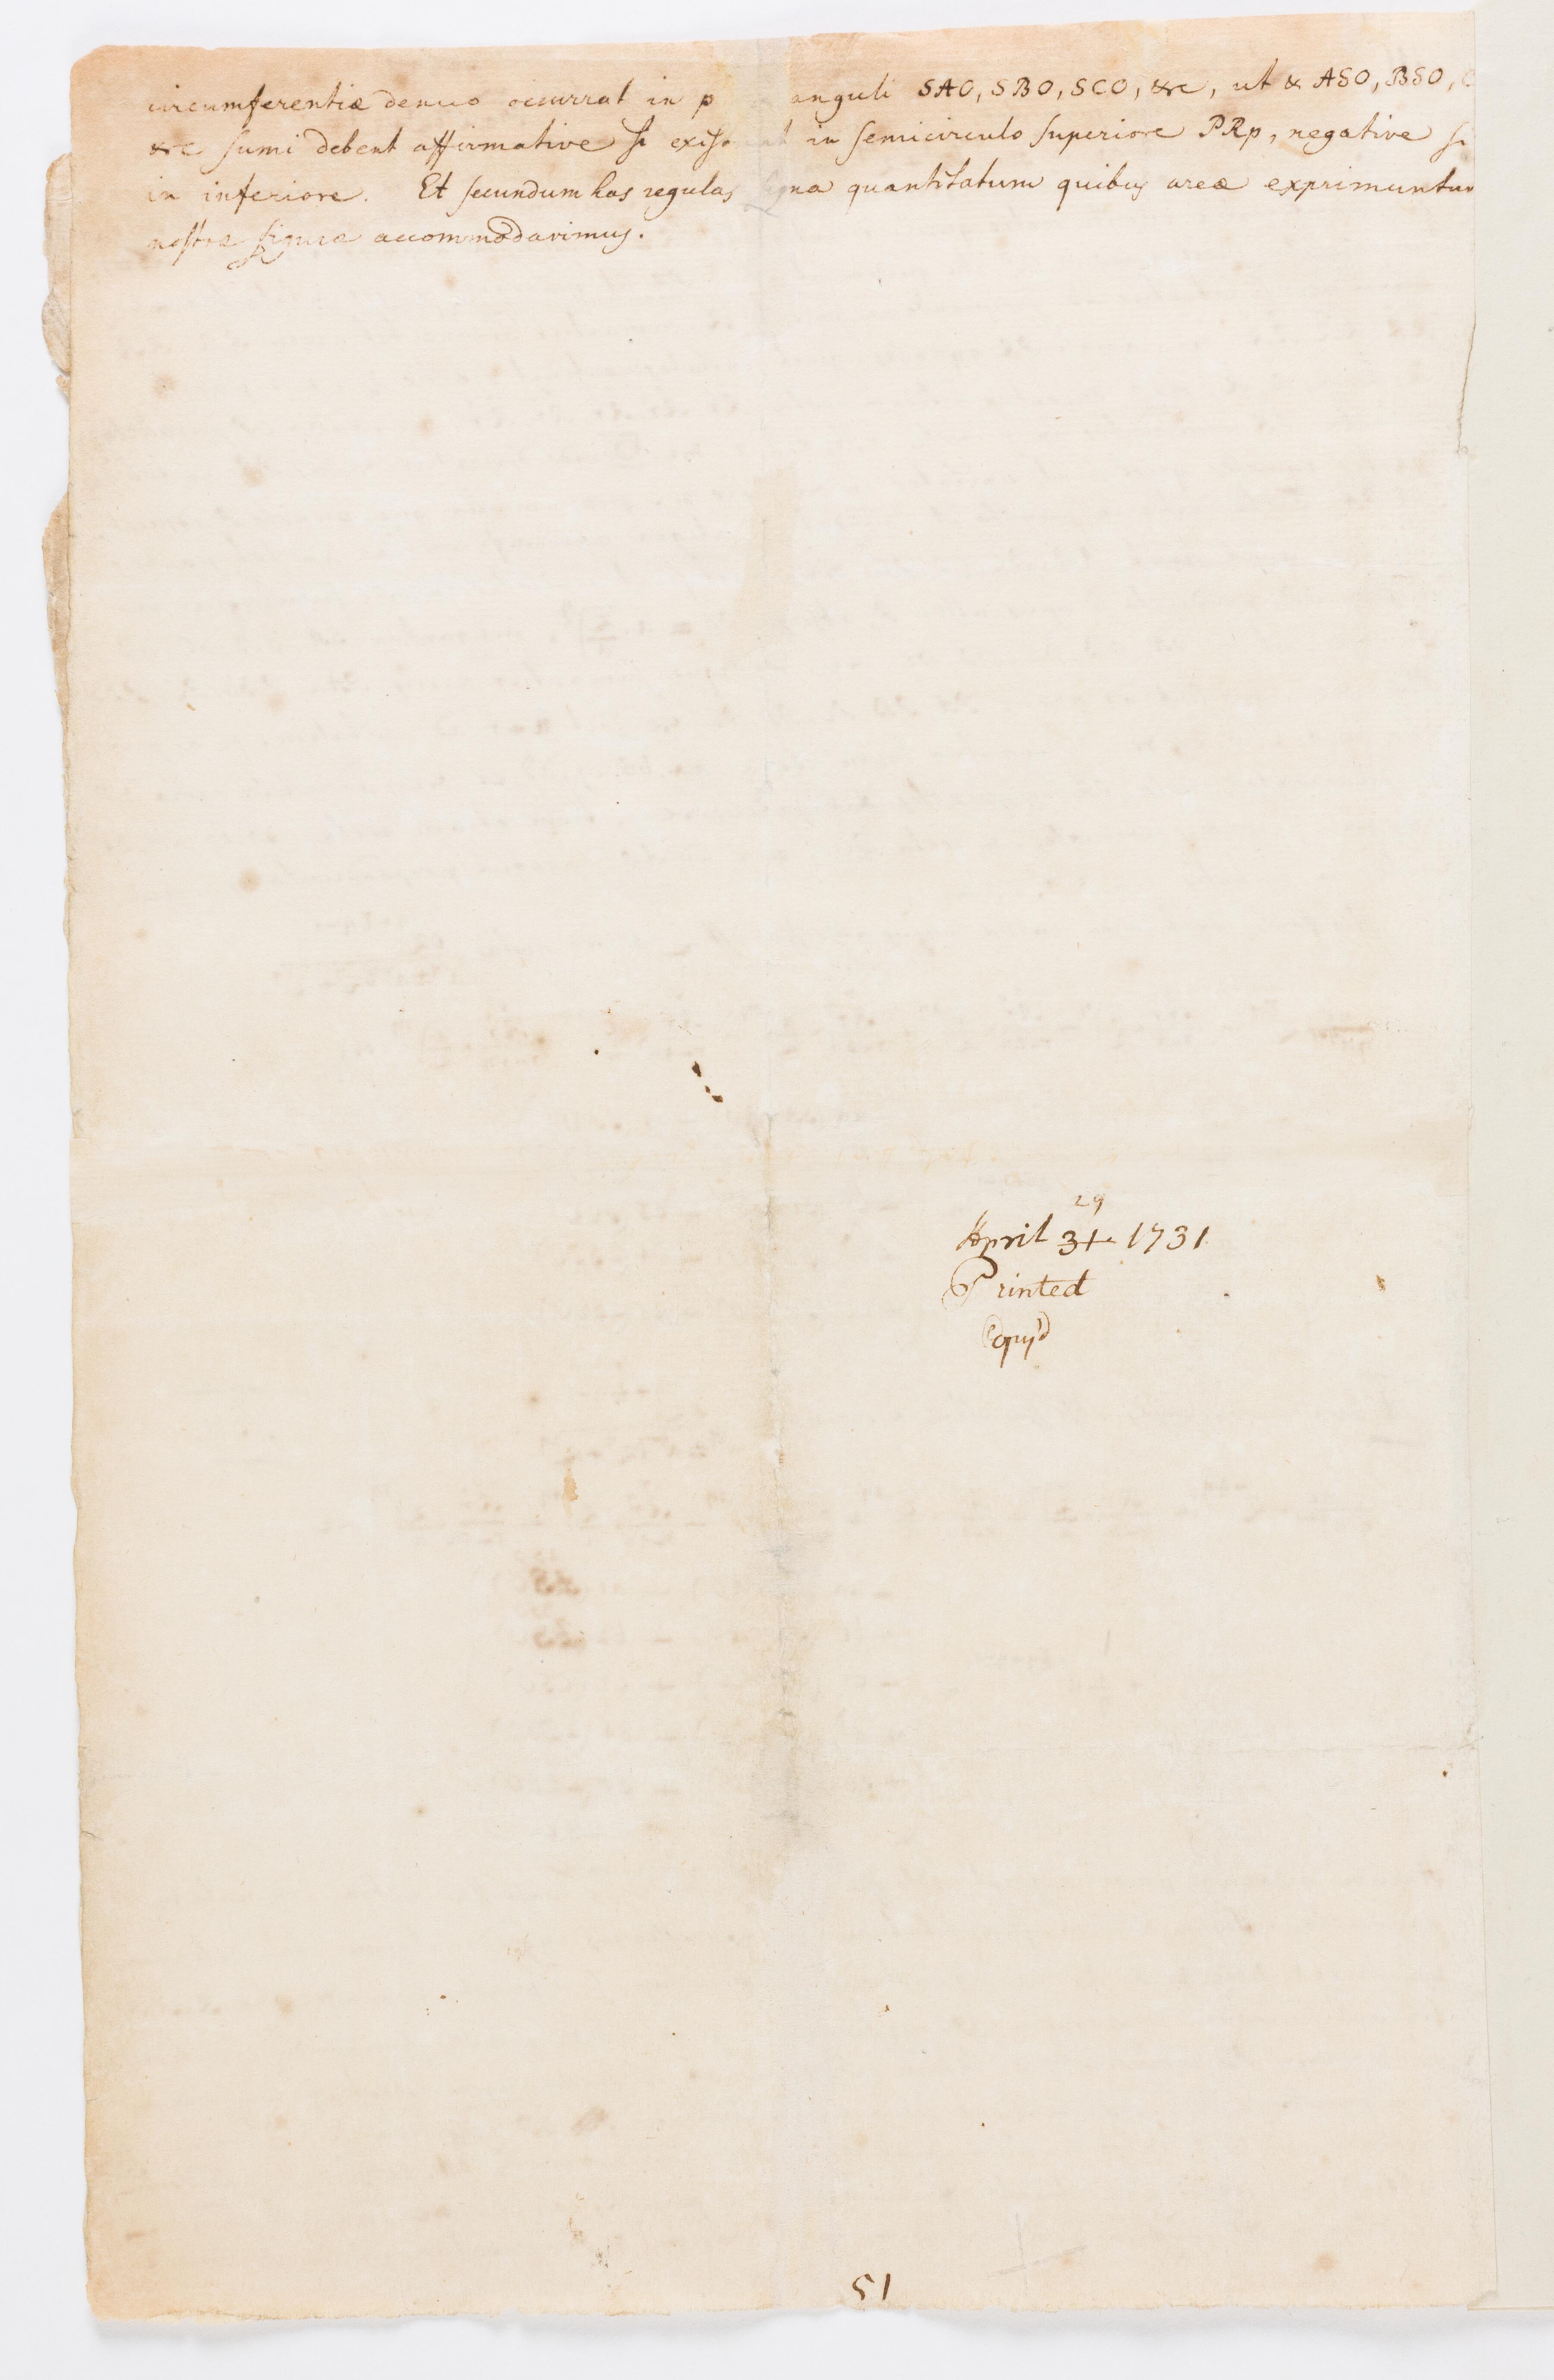 circumferentiæ denuo occurrat in p anguli SAO, SBO, SCO, &c, ut & ASO, BSO, C
&c sumi debent affirmative si exis in semicirculo superiore PRp, negative si
in inferiore. Et secundum has regulas gna quantitatum quibus areæ exprimuntur
nostræ figuræ accommodavimus.
29
April 31 1731
Printed
Copy'd
51